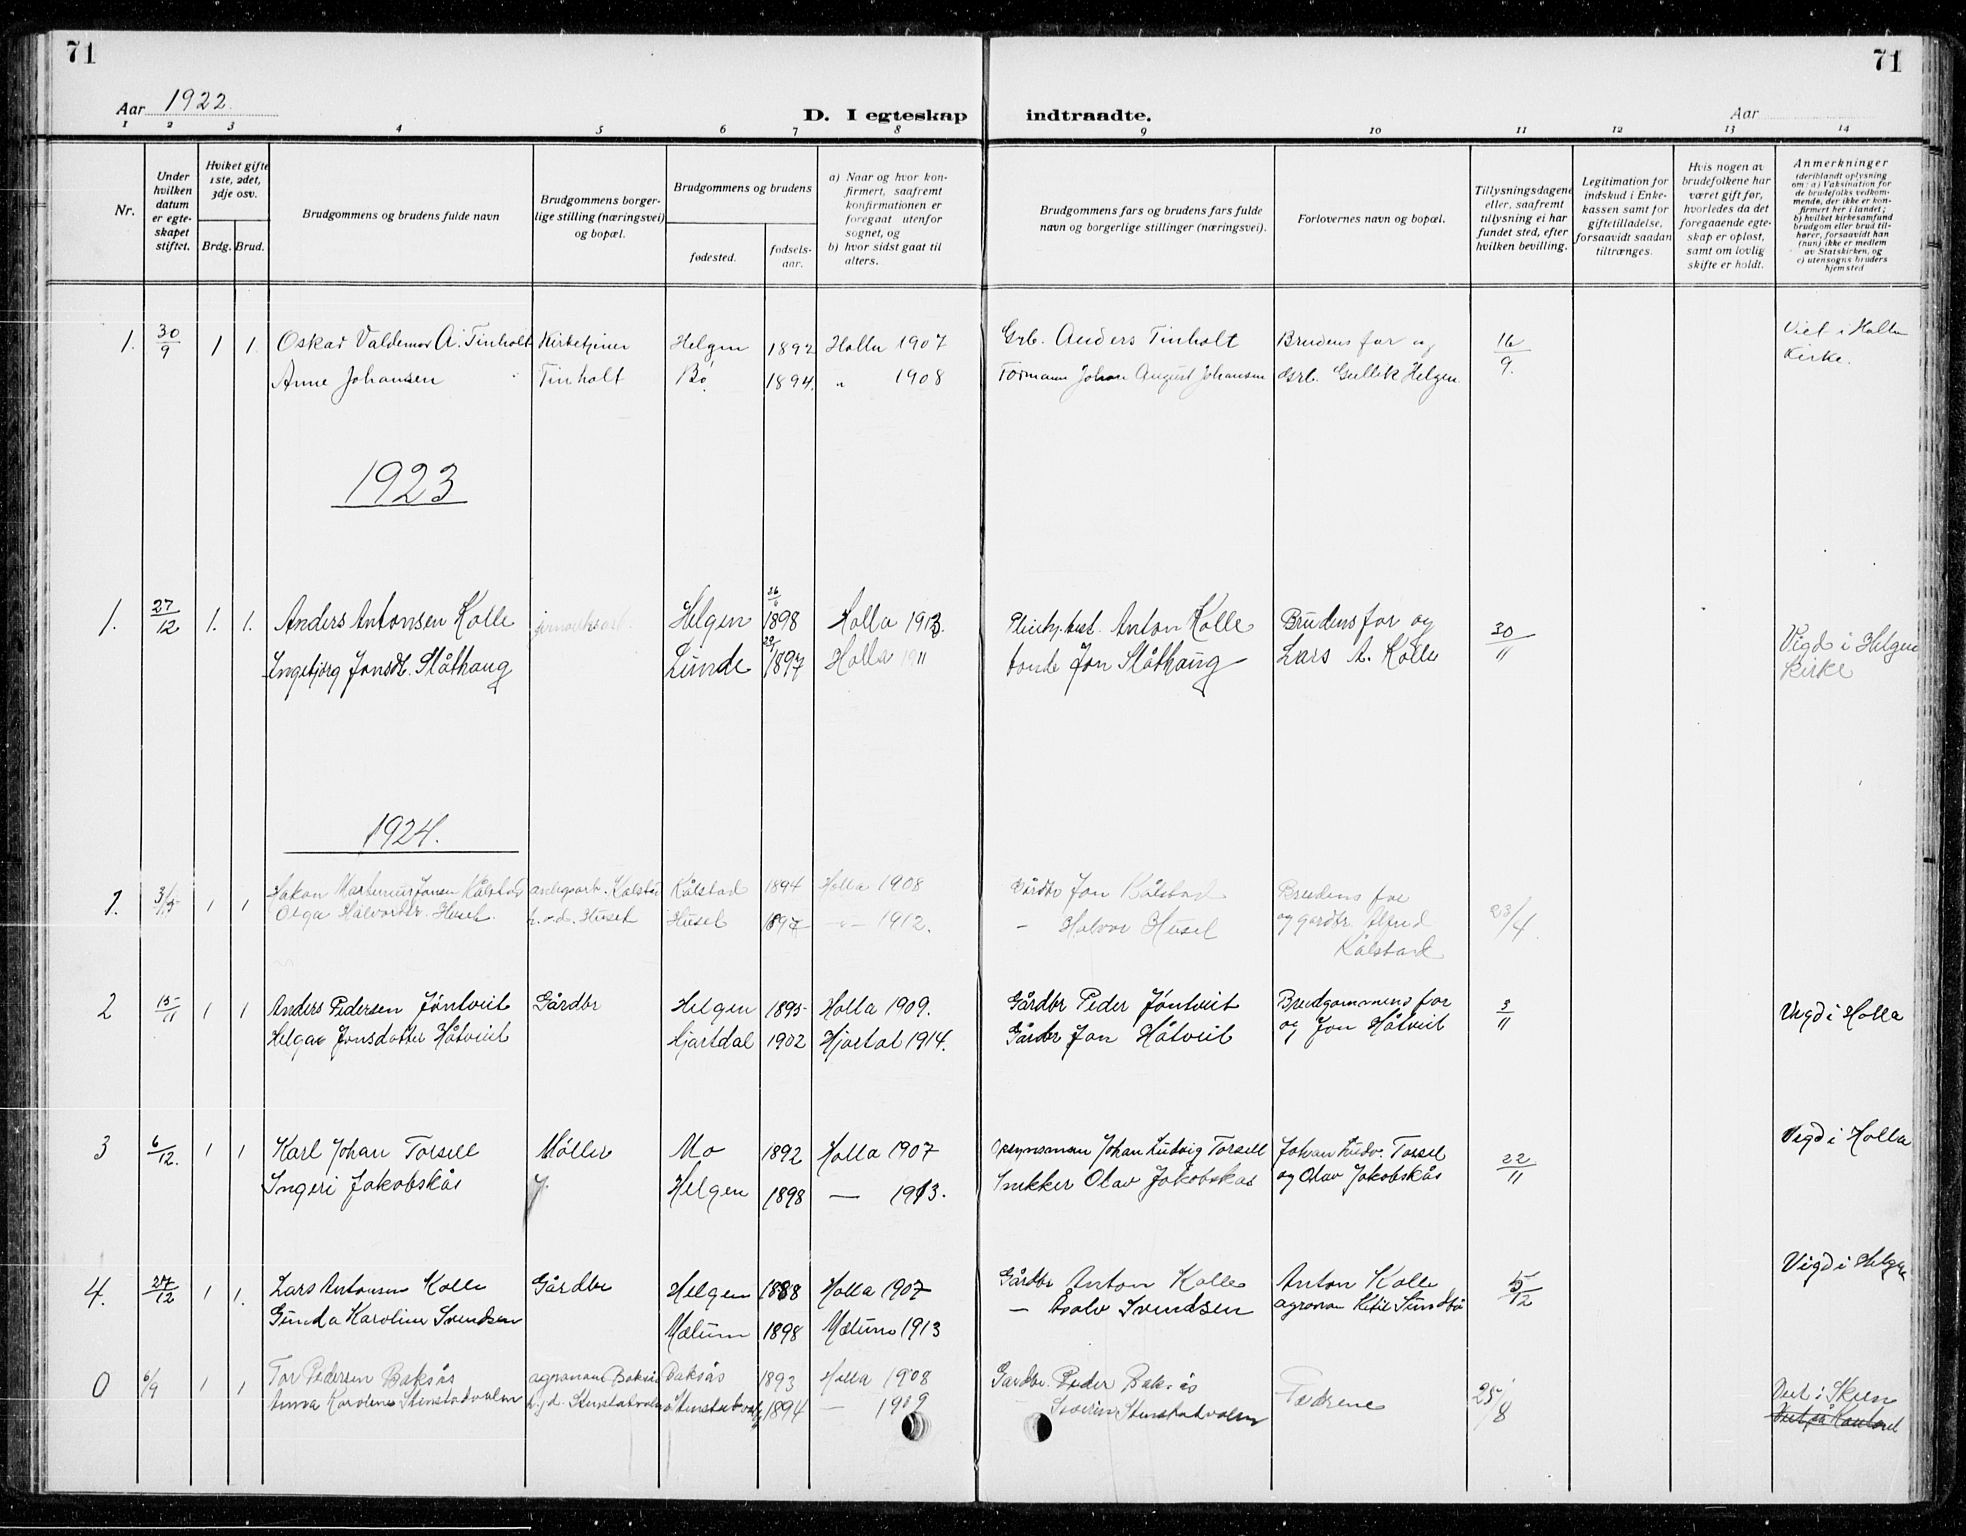 71
71
Aar 1922.
D. I egteskap indtraadte.
Aar
1 2 3 4 5 6 7 8 9 10 11 12 13 14
Nr.
Under hvilken datum er egteskapet stiftet.
Hviket gifte 1ste, 2det, 3dje osv.
Brdg. Brud.
Brudgommens og brudens fulde navn
Brudgommens borgerlige stilling (næringsvei) og bopæl.
Brudgommens og brudens
fødested.
fødselsaar.
a) Naar og hvor konfirmert, saafremt konfirmationen er foregaat utenfor sognet, og
b) hvor sidst gaat til alters.
Brudgommens fars og brudens fars fulde navn og borgerlige stillinger (næringsvei).
Forlovernes navn og bopæl.
Tillysningsdagene eller, saafremt tillysning ei har fundet sted, efter hvilken bevilling.
Legitimation for indskud i Enkekassen samt for giftetilladelse, forsaavidt saadan tiltrænges.
Hvis nogen av brudefolkene har været gift før, hvorledes da det foregaaende egteskap er opløst, samt om lovlig skifte er holdt.
Anmerkninger (deriblandt oplysning om: a) Vaksination for de brudefolks vedkommende, der ikke er konfirmert her i landet; b) hvilket kirkesamfund brudgom eller brud tilhører, forsaavidt han (hun) ikke er medlem av Statskirken, og c) utensogns bruders hjemsted
1. 30/9 1 1. Oskar Valdemar A. Tinholt Kirketjener Helgen 1892 Holla 1907 Grb. Anders Tinholt Brudens far og 16/9. Viet i Holla
Anne Johansen Tinholt Bø 1894. " 1908 Formann Johan August Johansen Grb. Gullik Helgen Kirke.
1923
1. 27/12 1. 1. Anders Antonsen Kolle Helgen 26/ 1898 Holla 1913. Anton Kolle Brudens far og 30/11 Vigd i Helgen
Ingebjørg Jonsdt. Slåthaug Lunde 29/ 1897 Holla 1911 bonde Jon Slåthaug Lars A. Kolle Kirke
1924.
1. 3/5 1 1 Håkon Martinius Jonsen Kålstad Kålstad 1894 Holla 1908 Gårdbr Jon Kålstad Brudens far 23/4
Olga Halvordtr. Huset. Huset Huset 1897 -"- 1912. - Halvor Huset og gardbr
Kålstad
2 15/11 1 1 Anders Pedersen Jøntveit Gårdbr Helgen 1895 Holla 1909. Gårdbr Peder Jøntveit Brudgommens far 3/11 Vigd i Holla
Helga Jonsdatter Håtveit Hjartdal 1902 Hjartdal 1914. Gårdbr Jon Håtveit og Jon Håtveit
3 6/12. 1 1 Karl Johan Torsell Møller Mo 1892 Holla 1907 Opsynsmann Johan Ludvig Torsell Johan Ludv. Torsell 22/11 Vigd i Holla
Ingeri Jakobskås Helgen 1898 — 1913. Snekker Olav Jakobskås og Olav Jakobskås
4. 27/12 1 1. Lars Antonsen Kolle Gårdbr Helgen 1888 Holla 1907 Gårdbr Anton Kolle Anton Kolle 5/12 Vigd i Helgen
Gunda Karoline Svendsen Mælum 1898 Mælum 1913 — Svendsen agronom Ketil Sundbø
0 6/9 1 1 Tor Pedersen Baksås agronom Baksås Baksås 1893 Holla 1908 Gardbr. Peder Baksås Fædrene 25/8 Viet i Skien
Anna Karoline Stenstadvolen Stenstadvolen 1894 — 1909 Severin Stenstadvolen